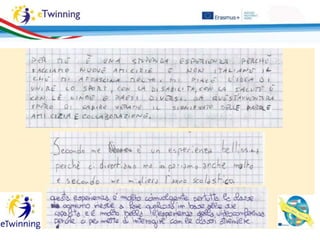 eTwinning
Erasmus+
PER ME È UNA STUPENDA ESPERIENZA PERCHÉ
FACCIAMO NUOVE AMICIZIE E NON ITALIANE IL
CHE MI AFFASCINA MOLTO. MI PIACE L'IDEA DI
UNIRE LO SPORT, CON LA DISABILITÀ, CON LA SALUTE E
CON LE LINGUE E PAESI DIVERSI. DA QUEST'AVVENTURA
SPERO DI CAPIRE VERAME IL SIGNIFICATO DELLE PAROLE
AMICIZIA E COLLABORAZIONE.
Secondo me è un esperienza bellissima
perché ci divertiamo ma impariamo anche molto
e secondo me migliora l'anno scolastico.
questa esperienza è molto coinvolgente perché la classe
ognuno mette a fare qualcosa in base alle sue
capacità e è molto bella l'esperienza della videoconferenza
perché ci permette di interagire con le classi straniere
eTwinning